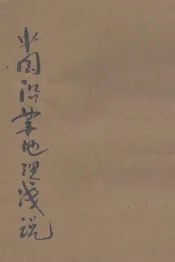 中国沿革地理浅说